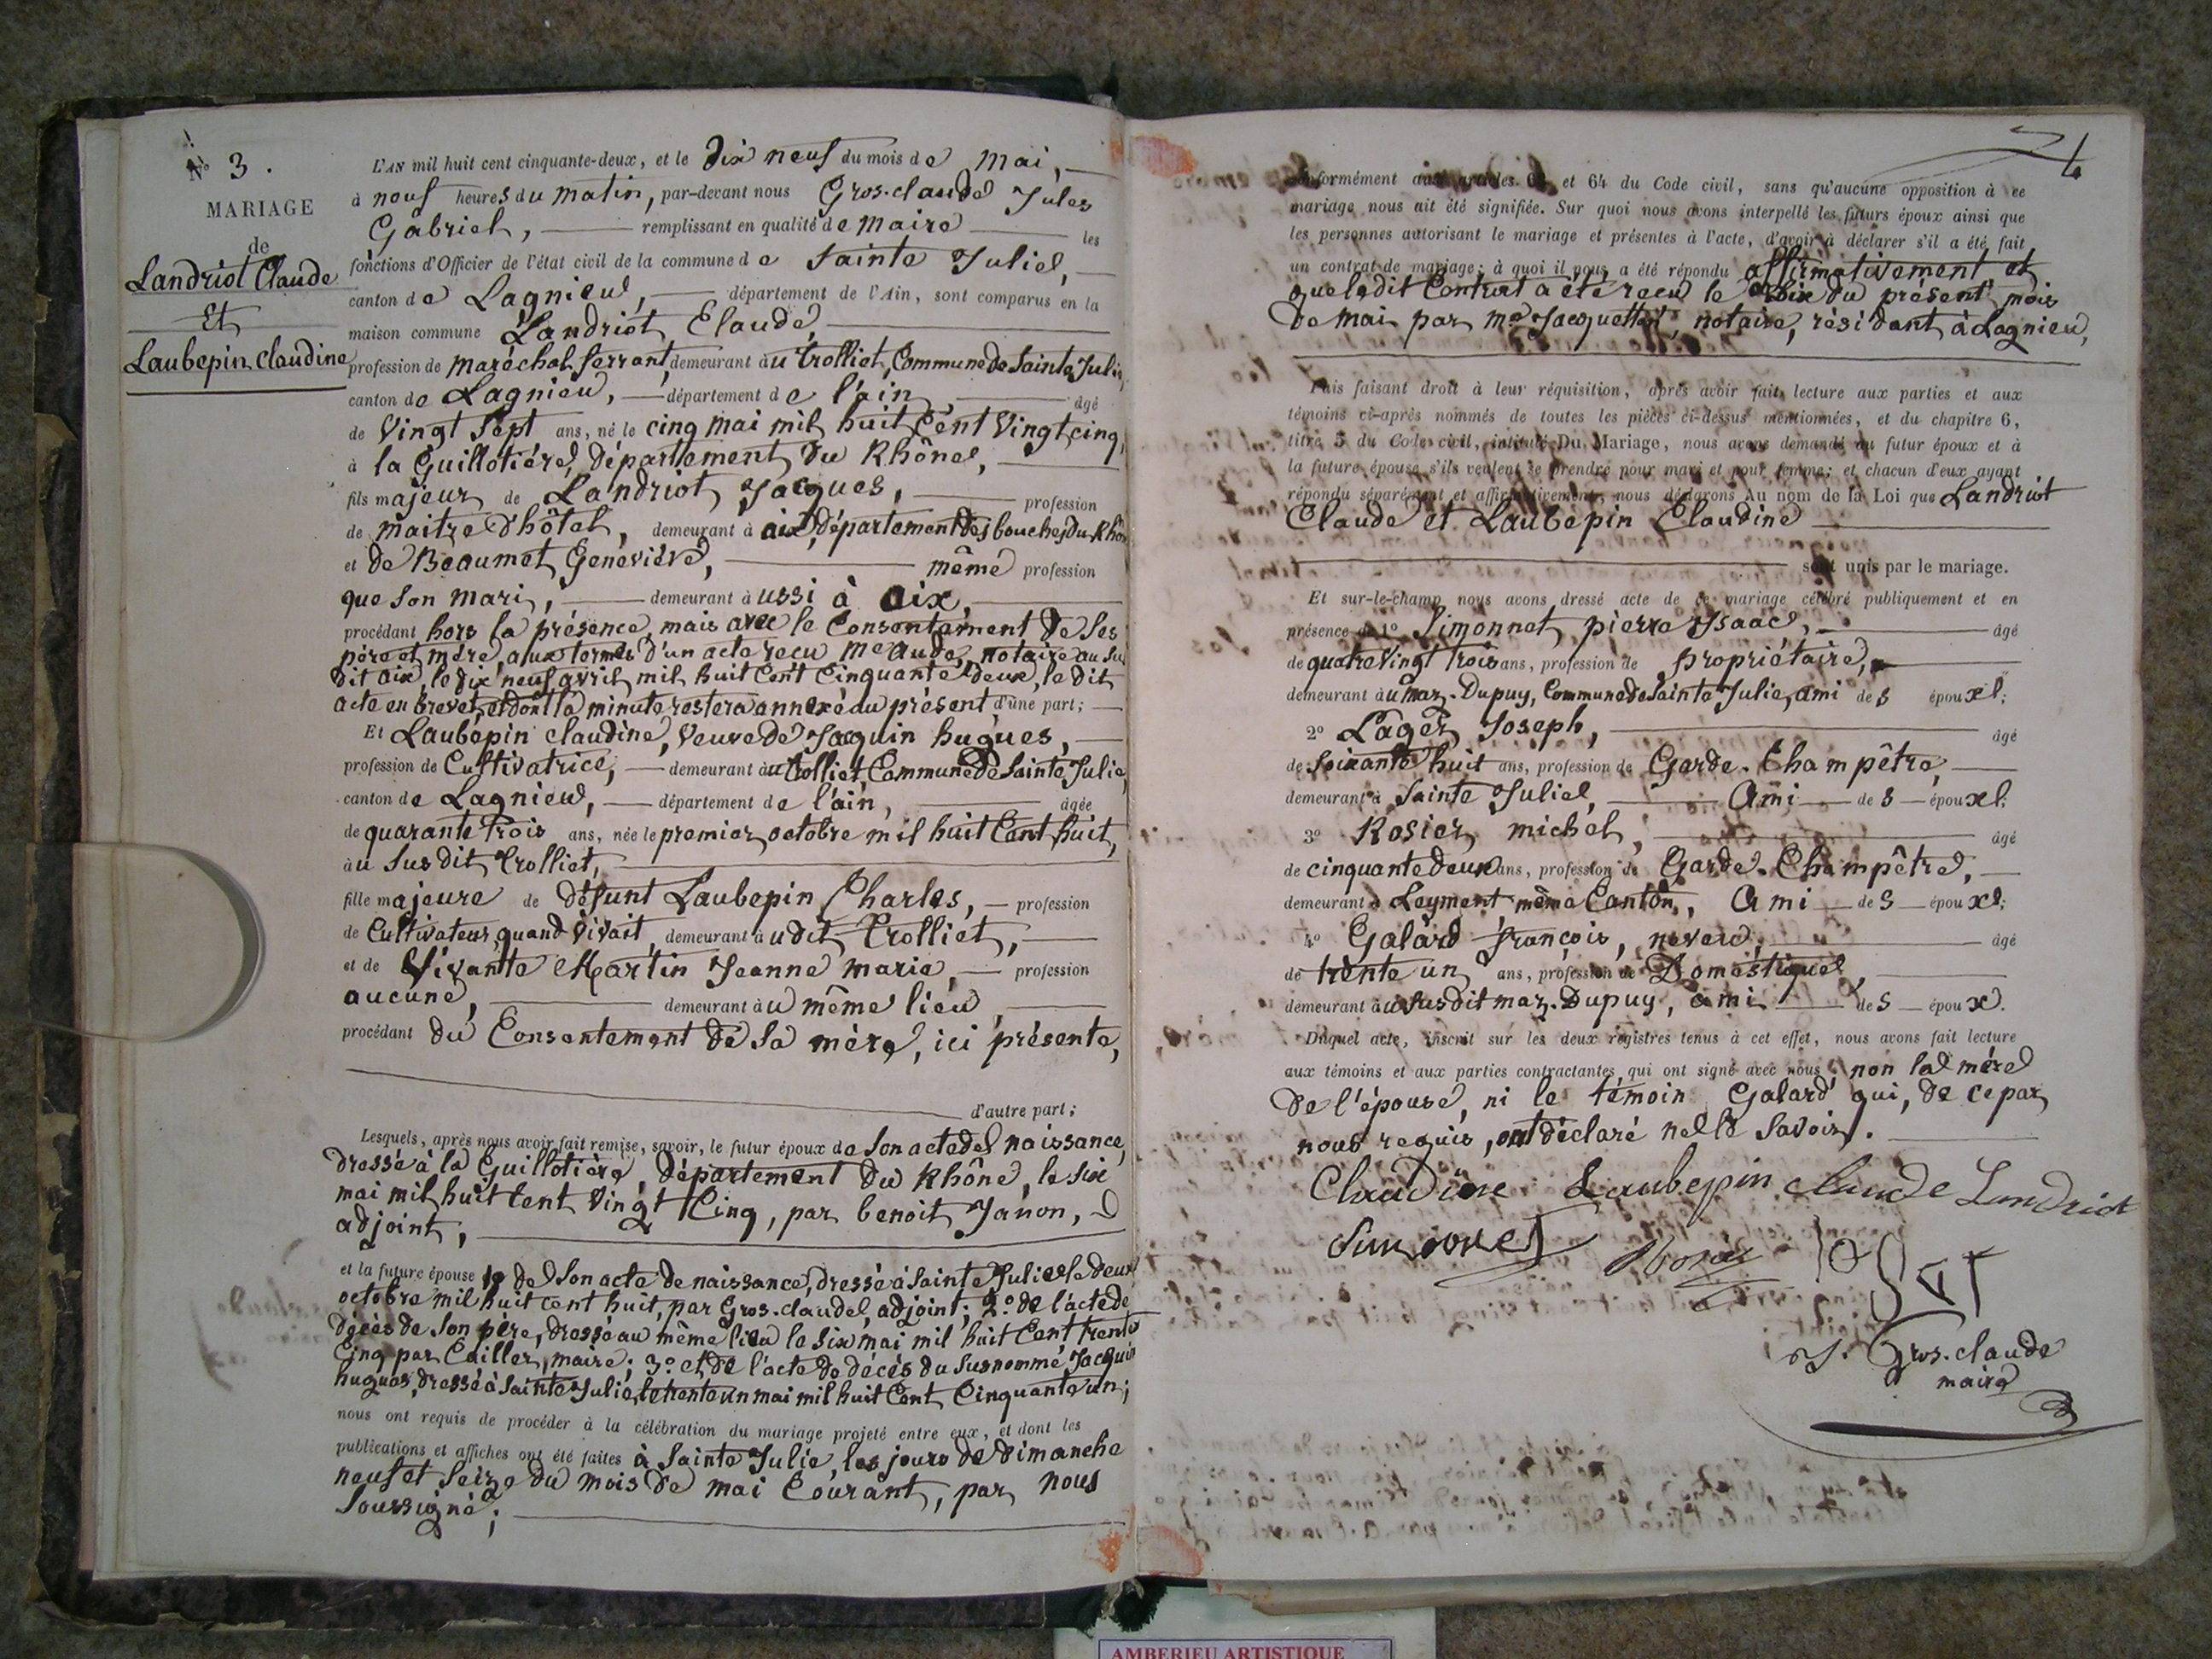 N° 3.
MARIAGE
de
Landriot Claude
Et
Laubepin Claudine
L'AN mil huit cent cinquante-deux, et le dix neuf du mois de mai,
à neuf heures du matin, par-devant nous Gros-claude Jules
Gabriel, remplissant en qualité de maire les
fonctions d'Officier de l'état civil de la commune de Sainte Julie,
canton de Lagnieu, département de l'Ain, sont comparus en la
maison commune Landriot Claude,
profession de maréchal ferrant, demeurant au trolliet, Commune de Sainte Julie,
canton de Lagnieu, département de l'ain, âgé
de Vingt Sept ans, né le cinq mai mil huit Cent Vingt cinq,
à la Guillotiére, département du Rhône,
fils majeur de Landriot Jacques, profession
de maitre d'hôtel, demeurant à aix, département des bouches du Rhône
et de Beaumet Geneviéve, même profession
que son mari, demeurant aussi à aix,
procédant hors la présence, mais avec le Consentement de ses
père et mère, aux termes d'un acte reçu Me Aude, notaire au su
dit aix, le dix neuf avril mil huit Cent Cinquante deux, le dit
acte en brevet, et dont la minute restera annexé au présent d'une part;
Et Laubepin claudine, veuve de Jacquin hugues,
profession de Cultivatrice, demeurant au trolliet Commune de Sainte Julie,
canton de Lagnieu, département de l'ain, âgée
de quarante trois ans, née le premier octobre mil huit Cent huit,
au sus dit trolliet,
fille majeure de défunt Laubepin Charles, profession
de Cultivateur quand vivait, demeurant au dit trolliet,
et de Vivante Martin Jeanne marie, profession
aucune, demeurant au même lieu,
procédant du Consentement de sa mère, ici présente,
d'autre part;
Lesquels, après nous avoir fait remise, savoir, le futur époux de son acte de naissance,
dressé à la Guillotière, département du Rhône, le six
mai mil huit cent vingt Cinq, par benoit Janon,
adjoint,
et la future épouse 1° de son acte de naissance, dressé à Sainte Julie le deux
octobre mil huit cent huit, par Gros-claude, adjoint; 2° de l'acte de
décès de son père, dressé au même lieu le six mai mil huit Cent trente
Cinq par Cailler, maire; 3° et de l'acte de décès du susnommé Jacquin
hugues, dressé à Sainte Julie, le trente un mai mil huit Cent Cinquante un;
nous ont requis de procéder à la célébration du mariage projeté entre eux, et dont les
publications et affiches ont été faites à Sainte Julie, les jours de dimanche
neuf et seize du mois de mai Courant, par nous
soussigné;
4
conformément aux articles 63 et 64 du Code civil, sans qu'aucune opposition à ce
mariage nous ait été signifiée. Sur quoi nous avons interpellé les futurs époux ainsi que
les personnes autorisant le mariage et présentes à l'acte, d'avoir à déclarer s'il a été fait
un contrat de mariage; à quoi il nous a été répondu affirmativement, et
que le dit Contrat a été reçu le du présent mois
de mai par Me Jacquettet, notaire, résidant à Lagnieu,
Puis faisant droit à leur réquisition, après avoir fait lecture aux parties et aux
témoins ci-après nommés de toutes les pièces ci-dessus mentionnées, et du chapitre 6,
titre 5 du Code civil, intitulé Du Mariage, nous avons demandé au futur époux et à
la future épouse s'ils veulent se prendre pour mari et pour femme; et chacun d'eux ayant
répondu séparément et affirmativement, nous déclarons Au nom de la Loi que Landriot
Claude et Laubepin Claudine
sont unis par le mariage.
Et sur-le-champ nous avons dressé acte de ce mariage célébré publiquement et en
présence de 1° Simonnet pierre Isaac, âgé
de quatre Vingt trois ans, profession de propriétaire,
demeurant au maz-Dupuy, Commune de Sainte Julie, ami des époux;
2° Lager Joseph, âgé
de soixante huit ans, profession de Garde-Champêtre,
demeurant à Sainte Julie, Ami des époux;
3° Rosier michel, âgé
de cinquante deux ans, profession de Garde-Champêtre,
demeurant à Leyment même Canton, Ami des époux;
4° Galard françois, neveu, âgé
de trente un ans, profession de Domestique,
demeurant au susdit maz-Dupuy, ami des époux.
Duquel acte, inscrit sur les deux registres tenus à cet effet, nous avons fait lecture
aux témoins et aux parties contractantes, qui ont signé avec nous, non la mére
de l'épouse, ni le témoin Galard qui, de ce par
nous requis, ont déclaré ne le savoir.
Claudine Laubepin claude Landriot
Simonnet
J. Gros-claude
maire
AMBERIEU ARTISTIQUE